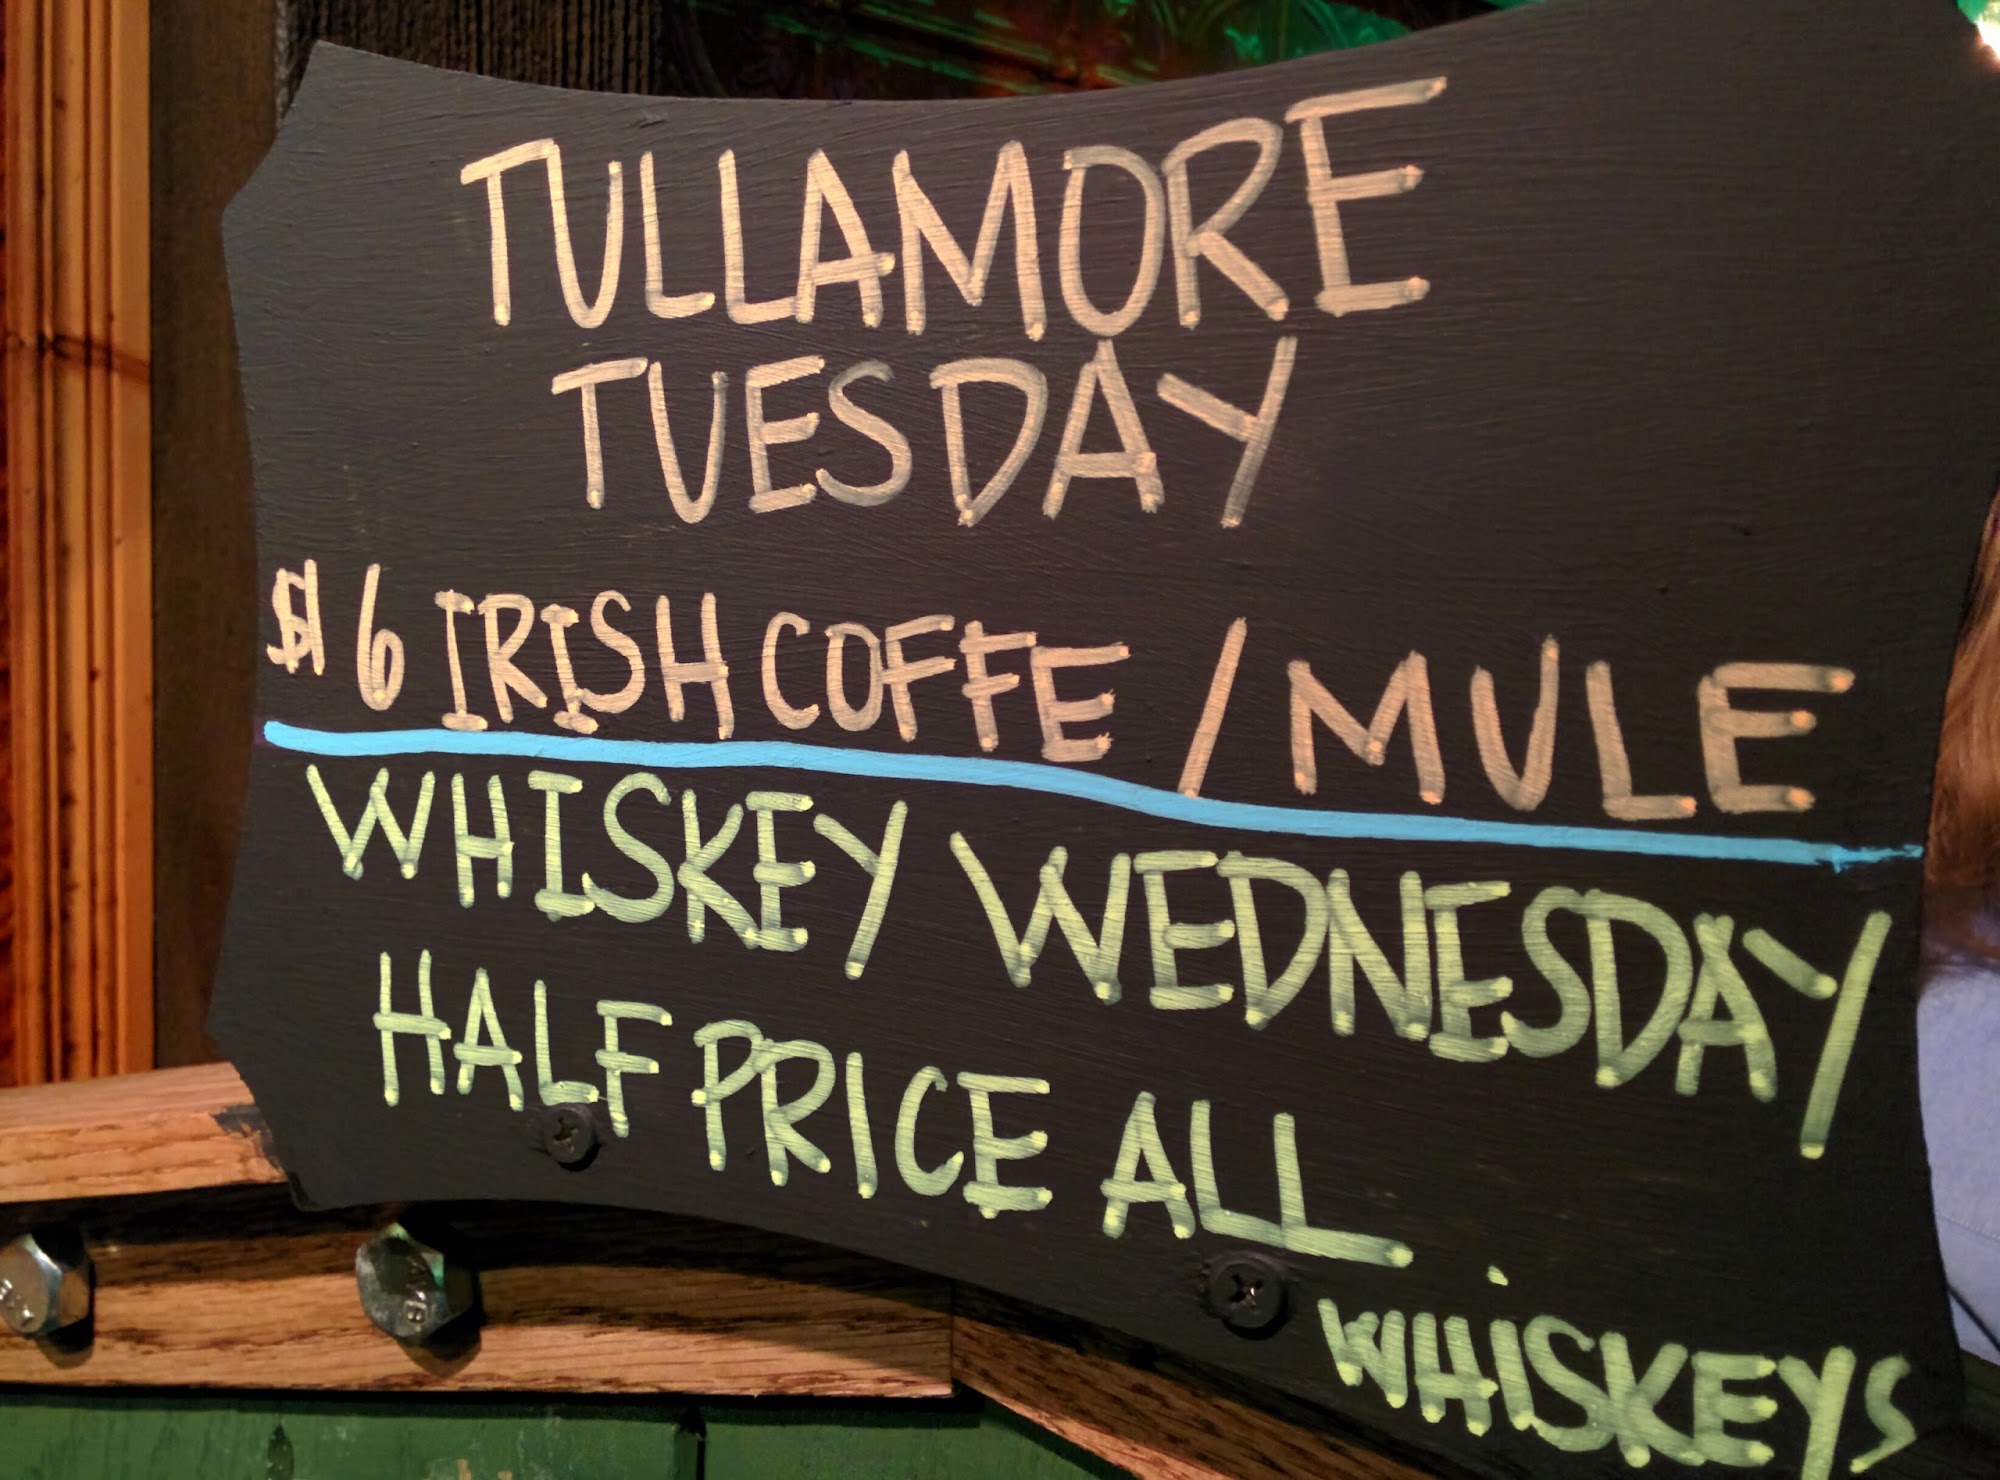 TULLAMORE
TUESDAY
$6 IRISH COFFE / MULE
WHISKEY WEDNESDAY
HALF PRICE ALL
WHiSKEYS